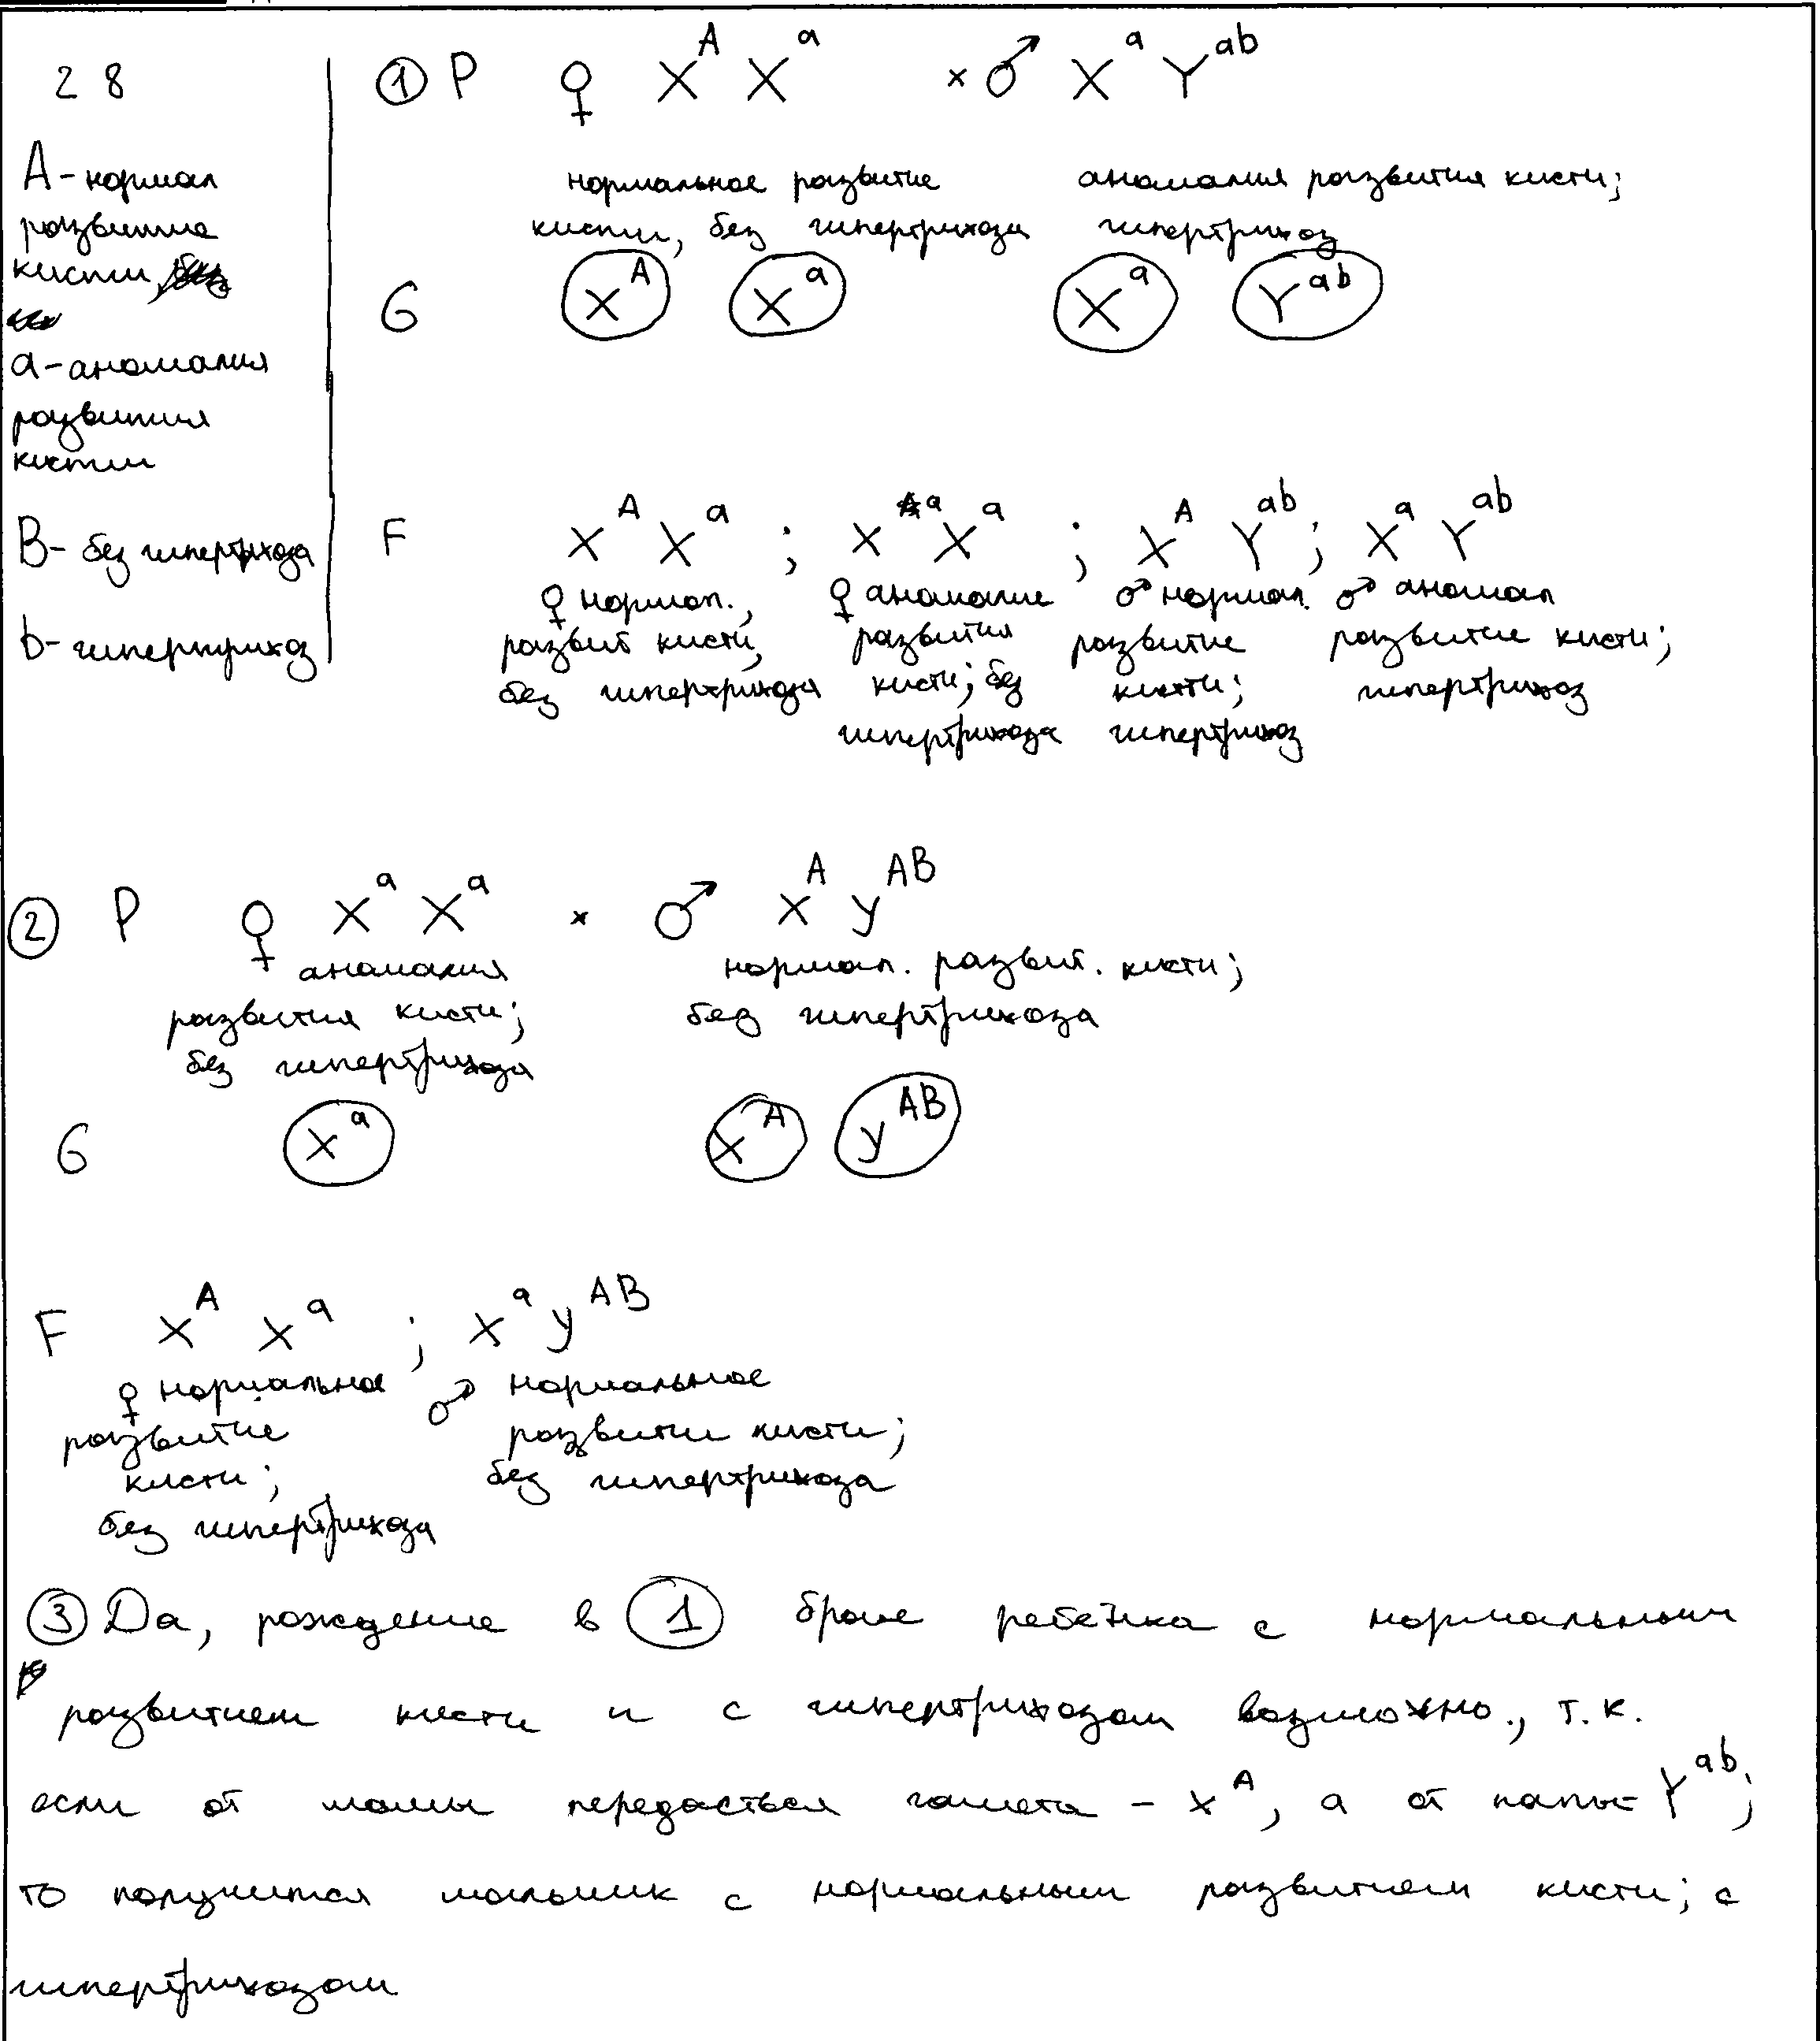 28
A - нормал
развитие
кисти
a - аномалия
развития
кисти
B - без гипертрихоза
b - гипертрихоз
① P ♀ X^A X^a × ♂ X^a Y^ab
нормальное развитие кисти, без гипертрихоза
аномалия развития кисти; гипертрихоз
G X^A X^a X^a Y^ab
F X^A X^a ; X^a X^a ; X^A Y^ab ; X^a Y^ab
♀ нормал., развит кисти, без гипертрихоза
♀ аномалие развития кисти; без гипертрихоза
♂ нормал. развитие кисти; гипертрихоз
♂ аномал развитие кисти; гипертрихоз
② P ♀ X^a X^a × ♂ X^A y^AB
аномалия
развития кисти;
без гипертрихоза
нормал. развит. кисти;
без гипертрихоза
G X^a X^A y^AB
F X^A X^a ; X^a y^AB
♀ нормальное
развитие
кисти;
без гипертрихоза
♂ нормальное
развити кисти;
без гипертрихоза
③ Да, рождение в ① браке ребёнка с нормальным
развитием кисти и с гипертрихозом возможно., т.к.
если от мамы передасться гамета - X^A, а от папы - Y^ab;
то получится мальчик с нормальным развитием кисти; с
гипертрихозом